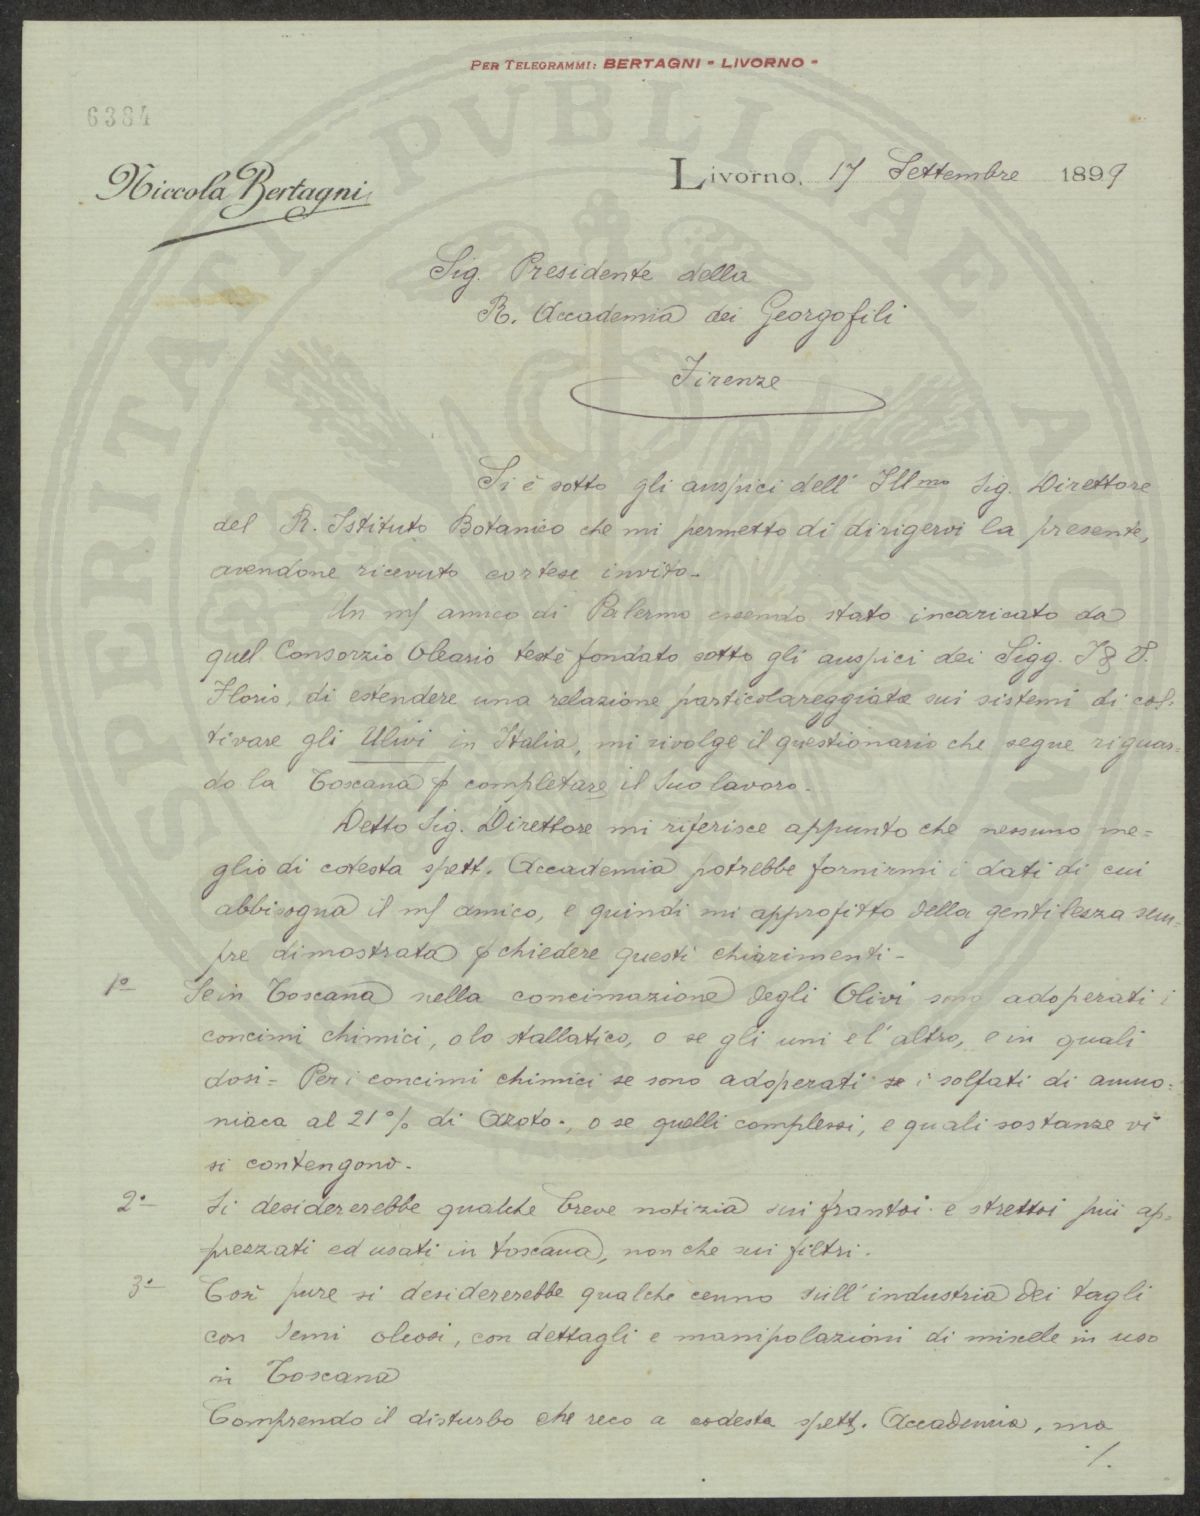 PER TELEGRAMMI: BERTAGNI - LIVORNO -
6384
Niccola Bertagni
Livorno, 17 Settembre 1899
Sig. Presidente della
R. Accademia dei Georgofili
Firenze
Si è sotto gli auspici dell' Illmo Sig. Direttore
del R. Istituto Botanico che mi permetto di dirigervi la presente,
avendone ricevuto cortese invito -
Un m/ amico di Palermo essendo stato incaricato da
quel Consorzio Oleario testè fondato sotto gli auspici dei Sigg. I & V.
Florio, di estendere una relazione particolareggiata sui sistemi di col-
tivare gli Ulivi in Italia, mi rivolge il questionario che segue riguar=
do la Toscana p completare il suo lavoro.
Detto Sig. Direttore mi riferisce appunto che nessuno me=
glio di cotesta spett. Accademia potrebbe fornirmi i dati di cui
abbisogna il m/ amico, e quindi mi approfitto della gentilezza sem-
pre dimostrata p chiedere questi chiarimenti -
1º Se in Toscana nella concimazione degli Olivi sono adoperati i
concimi chimici, o lo stallatico, o se gli uni e l' altro, e in quali
dosi = Per i concimi chimici se sono adoperati se i solfati di ammo=
niaca al 21 % di Azoto -, o se quelli complessi, e quali sostanze vi
si contengono.
2º Si desidererebbe qualche breve notizia sui frantoi e strettoi più ap=
prezzati ed usati in toscana, non che sui filtri.
3º Così pure si desidererebbe qualche cenno sull' industria dei tagli
con semi oleosi, con dettagli e manipolazioni di miscele in uso
in Toscana
Comprendo il disturbo che reco a codesta spett. Accademia, ma
./.
SPERITATI PVBLICAE